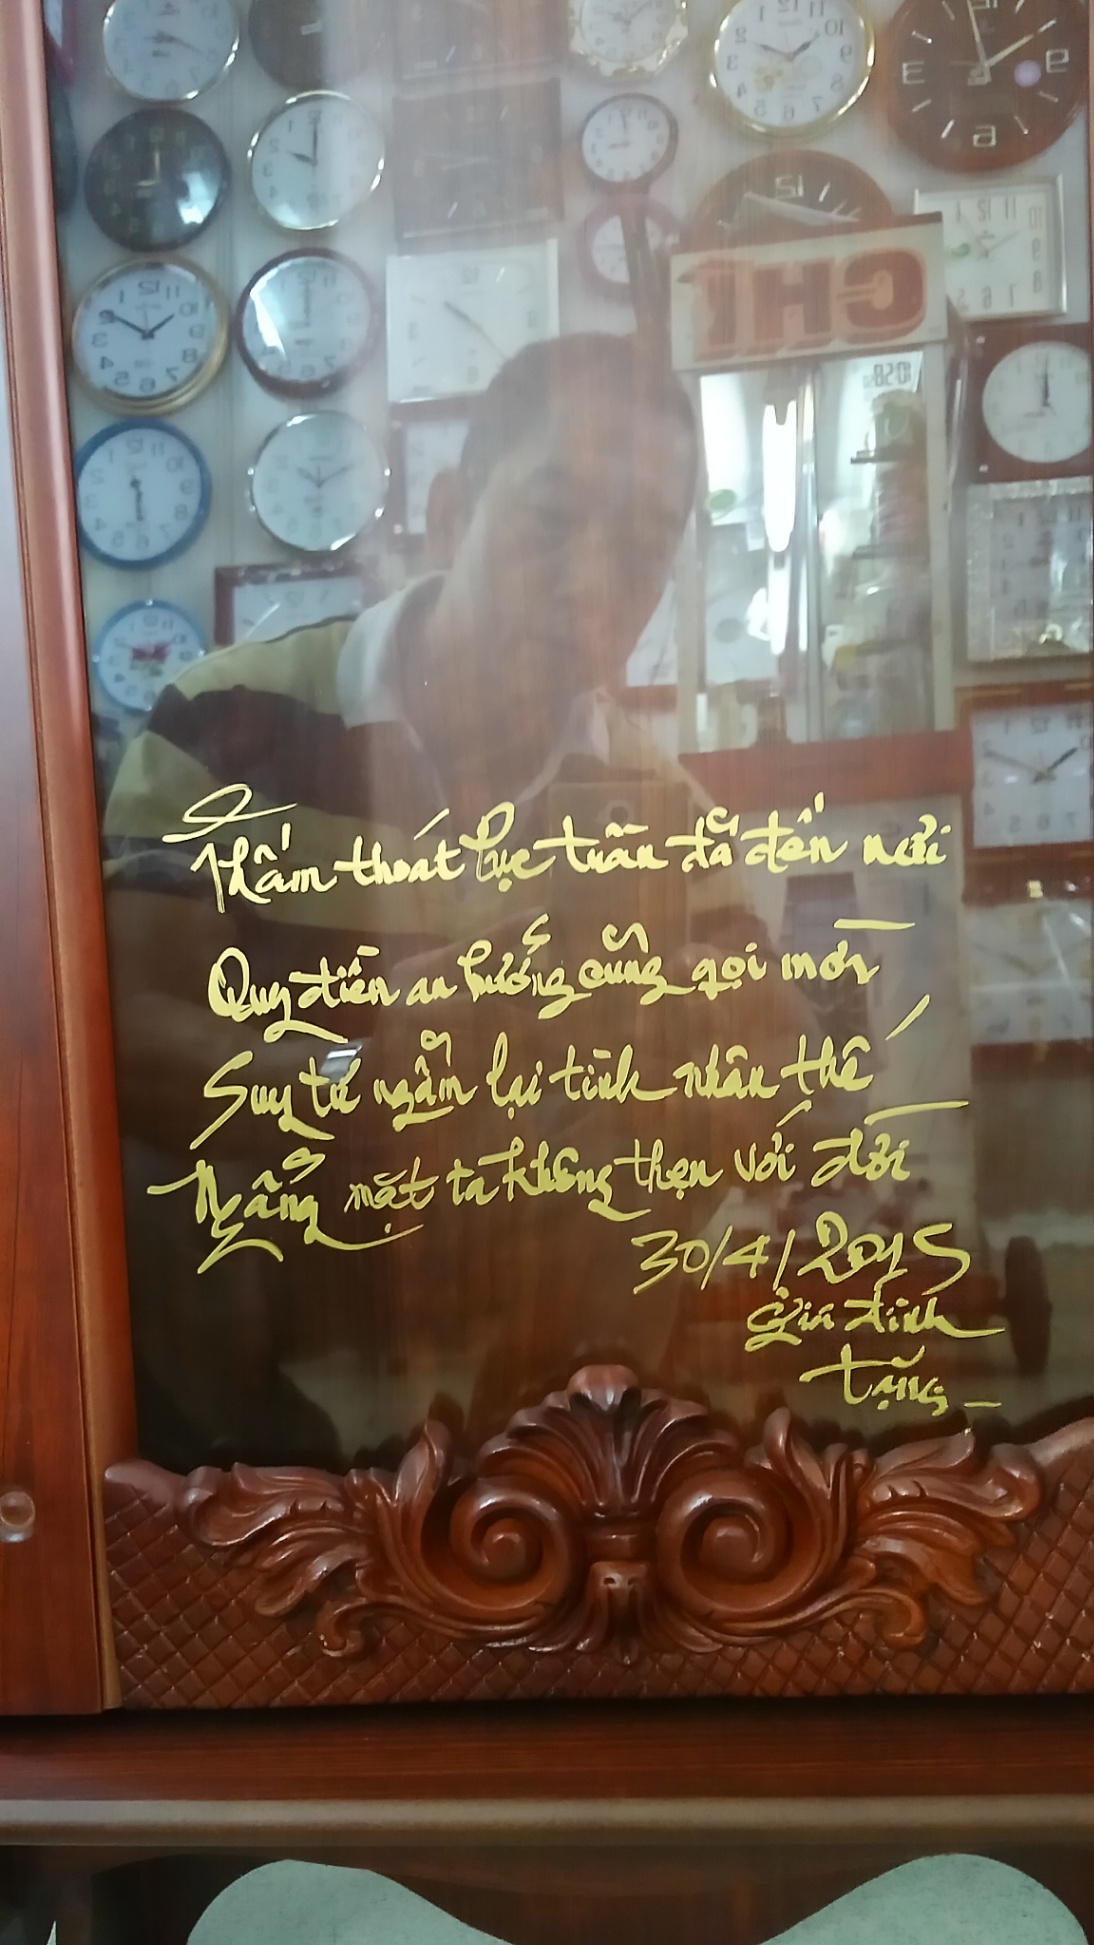 CHI
10:28
Thấm thoát lục tuần đã đến nơi
Quy điền an hưởng cũng gọi mời
Suy tư ngẫm lại tình nhân thế
Ngẩng mặt ta không thẹn với đời
30/4/2015
Gia đình
tặng